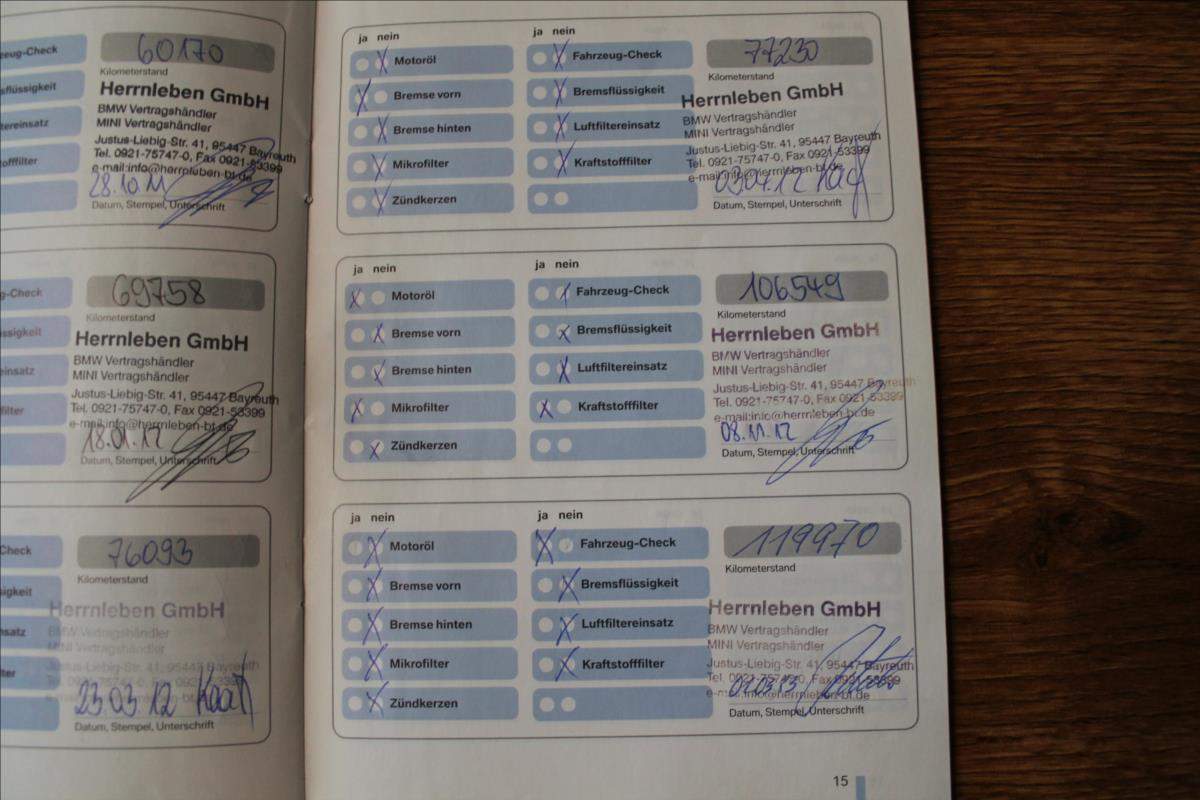 zeug-Check
sflüssigkeit
tereinsatz
tofffilter
60170
Kilometerstand
Herrnleben GmbH
BMW Vertragshändler
MINI Vertragshändler
Justus-Liebig-Str. 41, 95447 Bayreuth
Tel. 0921-75747-0, Fax 0921-53399
e-mail:info@herrnleben-bt.de
28.10.11
Datum, Stempel, Unterschrift
g-Check
ssigkeit
einsatz
filter
69758
Kilometerstand
Herrnleben GmbH
BMW Vertragshändler
MINI Vertragshändler
Justus-Liebig-Str. 41, 95447 Bayreuth
Tel. 0921-75747-0, Fax 0921-53399
e-mail:info@herrnleben-bt.de
18.01.12
Datum, Stempel, Unterschrift
Check
sigkeit
nsatz
ter
76093
Kilometerstand
Herrnleben GmbH
BMW Vertragshändler
MINI Vertragshändler
Justus-Liebig-Str. 41, 95447 Bayreuth
23 03 12
Datum, Stempel, Unterschrift
ja nein
Motoröl
Bremse vorn
Bremse hinten
Mikrofilter
Zündkerzen
ja nein
Fahrzeug-Check
Bremsflüssigkeit
Luftfiltereinsatz
Kraftstofffilter
77230
Kilometerstand
Herrnleben GmbH
BMW Vertragshändler
MINI Vertragshändler
Justus-Liebig-Str. 41, 95447 Bayreuth
Tel. 0921-75747-0, Fax 0921-53399
e-mail:info@herrnleben-bt.de
03.04.12
Datum, Stempel, Unterschrift
ja nein
Motoröl
Bremse vorn
Bremse hinten
Mikrofilter
Zündkerzen
ja nein
Fahrzeug-Check
Bremsflüssigkeit
Luftfiltereinsatz
Kraftstofffilter
106549
Kilometerstand
Herrnleben GmbH
BMW Vertragshändler
MINI Vertragshändler
Justus-Liebig-Str. 41, 95447 Bayreuth
Tel. 0921-75747-0, Fax 0921-53399
e-mail:info@herrnleben-bt.de
08.11.12
Datum, Stempel, Unterschrift
ja nein
Motoröl
Bremse vorn
Bremse hinten
Mikrofilter
Zündkerzen
ja nein
Fahrzeug-Check
Bremsflüssigkeit
Luftfiltereinsatz
Kraftstofffilter
119970
Kilometerstand
Herrnleben GmbH
BMW Vertragshändler
MINI Vertragshändler
Justus-Liebig-Str. 41, 95447 Bayreuth
Tel. 0921-75747-0, Fax 0921-53399
e-mail:info@herrnleben-bt.de
Datum, Stempel, Unterschrift
15